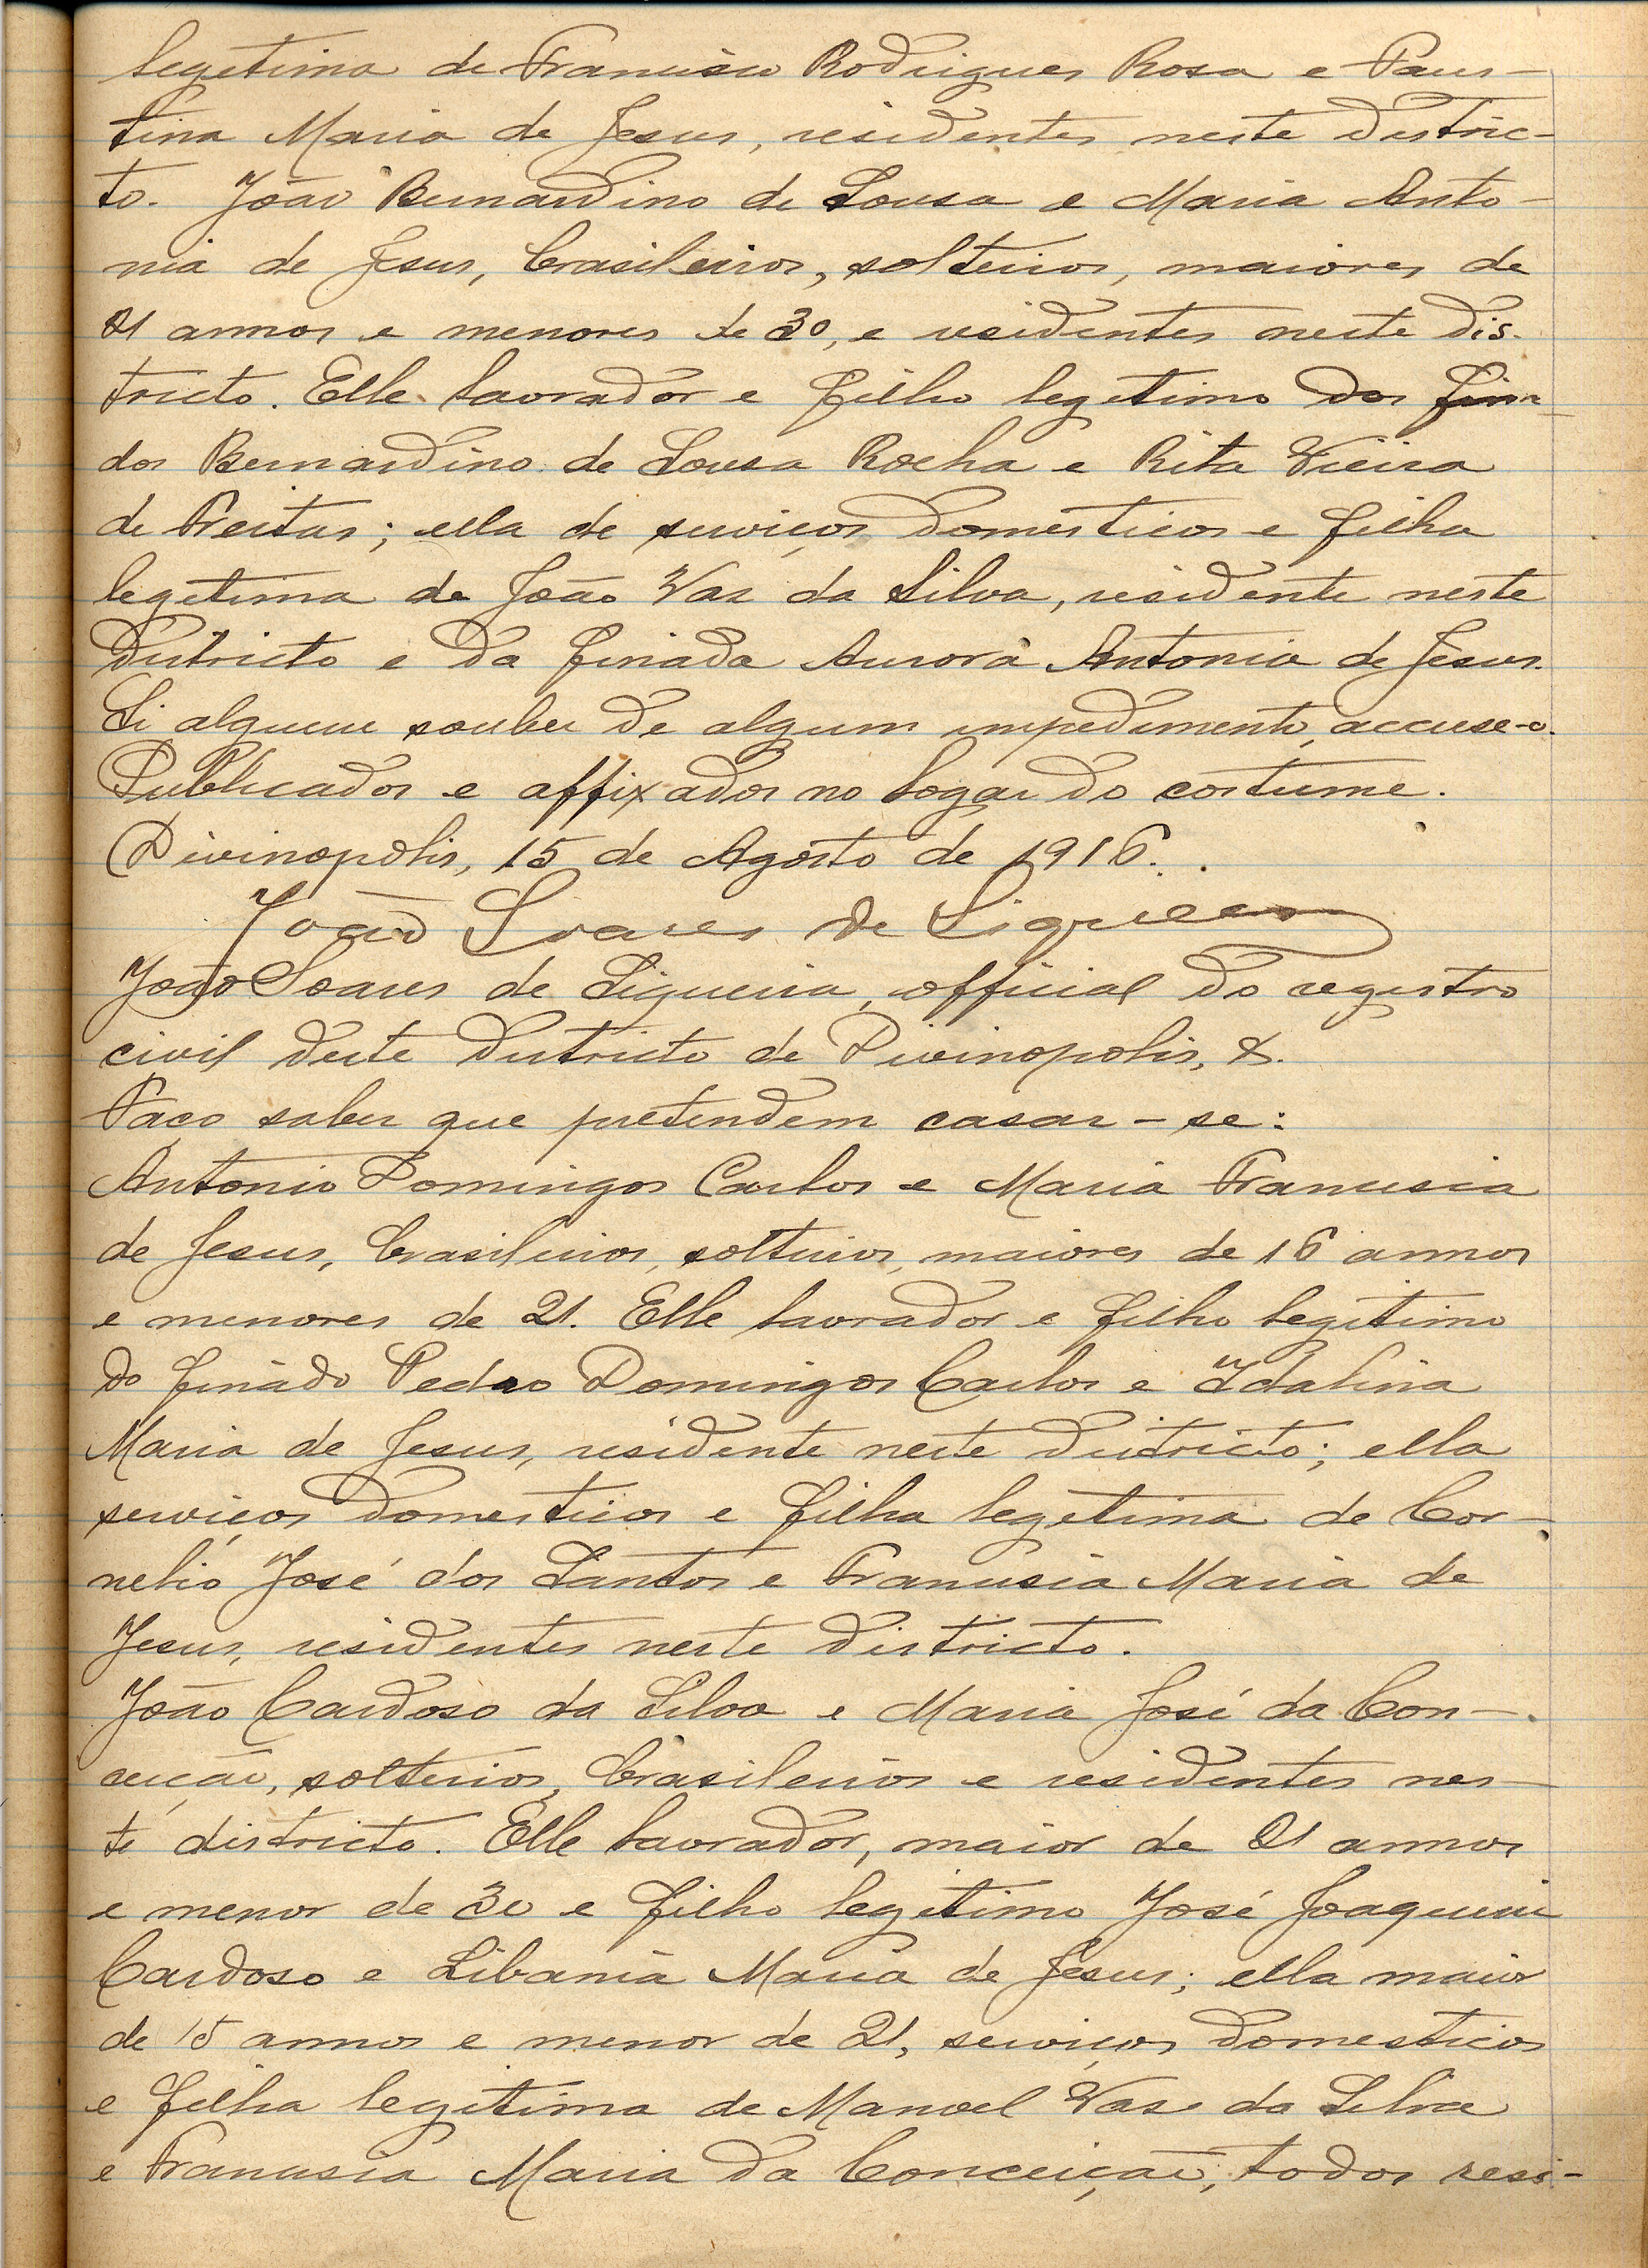 legitima de Francisco Rodrigues Rosa e Faus-
tina Maria de Jesus, residentes neste distric-
to. João Bernardino de Sousa e Maria Anto-
nia de Jesus, brasileiros, solteiros, maiores de
21 annos e menores de 30, e residentes neste dis-
tricto. Elle lavrador e filho legitimo dos fina-
dos Bernardino de Sousa Rocha e Rita Vieira
de Freitas; ella de serviços domesticos e filha
legitima de João Vaz da Silva, residente neste
districto e da finada Aurora Antonia de Jesus.
Si alguem souber de algum impedimento, accuse-o.
Publicados e affixados no logar do costume.
Divinopolis, 15 de Agosto de 1916.
João Soares de Siqueira
João Soares de Siqueira, official do registro
civil deste districto de Divinopolis, &.
Faço saber que pretendem casar-se:
Antonio Domingos Carlos e Maria Francisca
de Jesus, brasileiros, solteiros, maiores de 16 annos
e menores de 21. Elle lavrador e filho legitimo
do finado Pedro Domingos Carlos e Idalina
Maria de Jesus, residente neste districto; ella
serviços domesticos e filha legitima de Cor-
nelio José dos Santos e Francisca Maria de
Jesus, residentes neste districto.
João Cardoso da Silva e Maria José da Con-
ceição, solteiros, brasileiros e residentes nes-
te districto. Elle lavrador, maior de 21 annos
e menor de 30 e filho legitimo José Joaquim
Cardoso e Libania Maria de Jesus; ella maior
de 15 annos e menor de 21, serviços domesticos
e filha legitima de Manoel Vaz da Silva
e Francisca Maria da Conceição, todos resi-